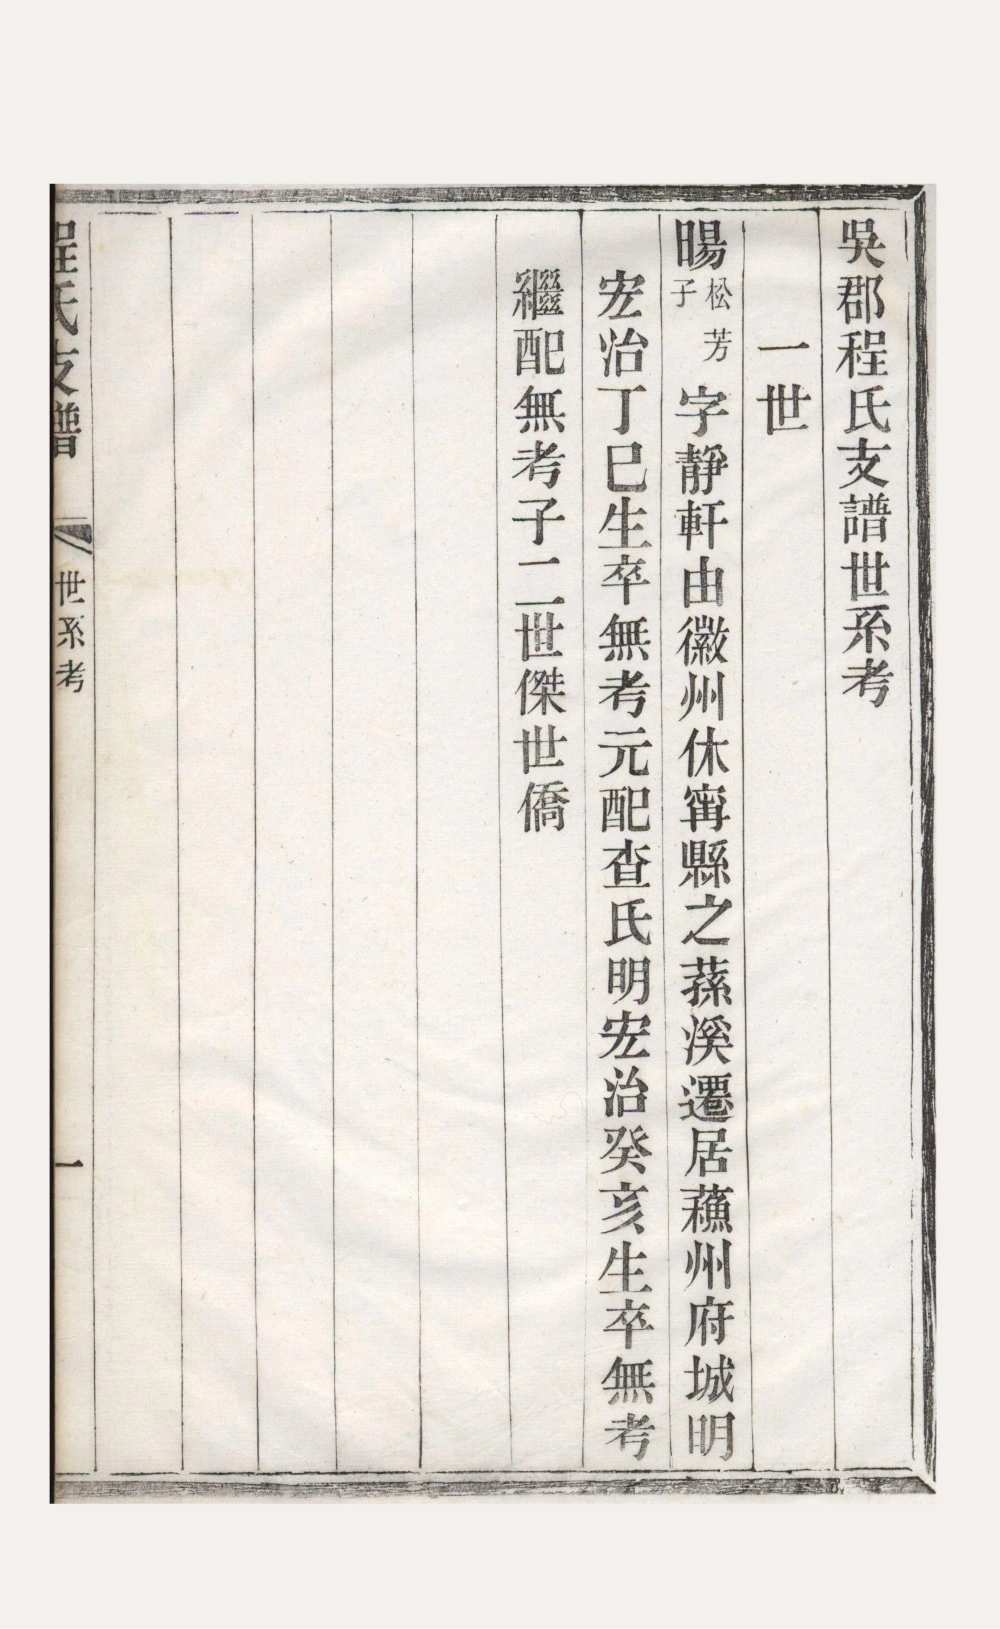 吳郡程氏支譜世系考
一世
暘松芳子字靜軒由徽州休甯縣之蓀溪遷居蘓州府城明
宏治丁巳生卒無考元配查氏明宏治癸亥生卒無考
繼配無考子二世傑世僑
程氏支譜 世系考 一